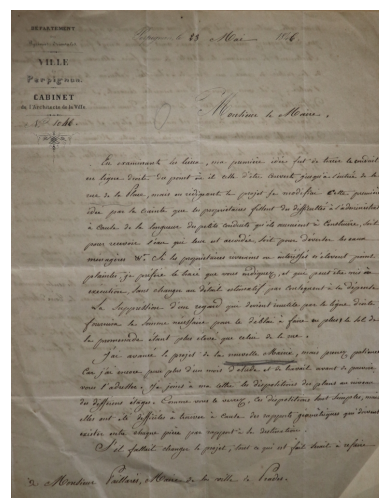 DÉPARTEMENT
des Pyrénées-Orientales
VILLE
de
Perpignan
CABINET
de l'Architecte de la Ville
N° 1046
Perpignan le 23 Mai
Monsieur le Maire,
En examinant les lieux, ma première idée fut de tracer le conduit
en ligne droite du point où il est découvert jusqu'à l'entrée de la
rue de la Place, mais en rédigeant le projet j'ai modifié cette première
idée par la crainte que les propriétaires fassent des difficultés à l'administration
à cause de la longueur des petits conduits qu'ils auraient à construire, soit
pour recevoir l'eau qui leur est accordée, soit pour déverser les eaux
ménagères &a. Si les propriétaires riverains ou intéressés n'élèvent point
plaintes, je préfère le tracé que vous indiquez, et qui peut être mis à
exécution sans changer au détail estimatif par conséquent à la dépense
La suppression d'un regard qui devient inutile par la ligne droite
fournira la somme nécessaire pour le déblai à faire en plus, le sol de
la promenade étant plus élevé que celui de la rue.
J'ai avancé le projet de la nouvelle Mairie, mais prenez patience
car j'ai encore pour plus d'un mois d'étude et de travail avant de pouvoir
vous l'adresser. Je joins à ma lettre les dispositions des plans au niveau
des différents étages. Comme vous le verrez, ces dispositions sont simples, mais
elles ont été difficiles à trouver à cause des rapports géométriques qui doivent
exister entre chaque pièce par rapport à la destination.
S'il fallait changer le projet, tout ce qui est fait serait à refaire
de Monsieur Maire de la ville de Prades.